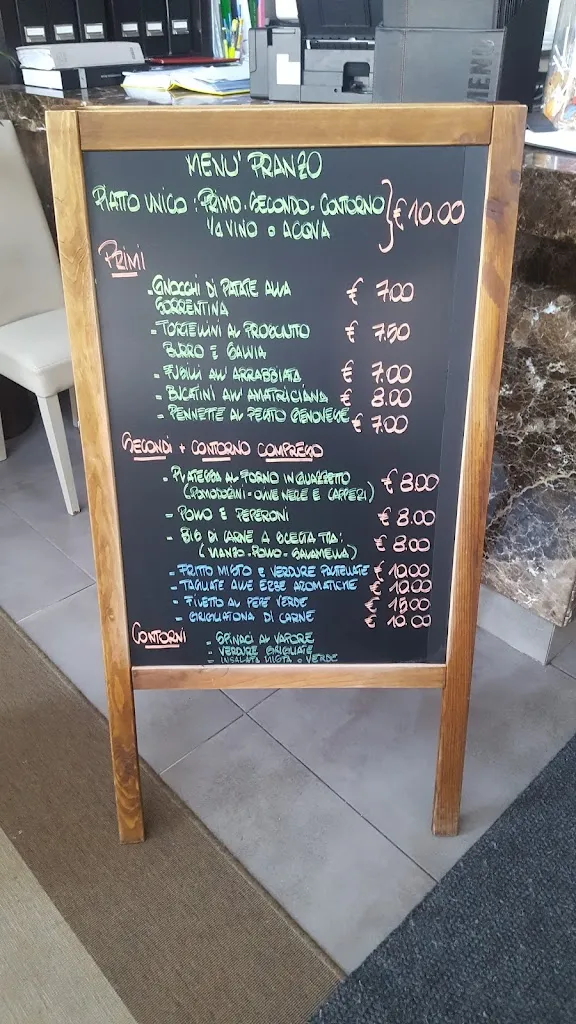 MENU' PRANZO
PIATTO UNICO : PRIMO - SECONDO - CONTORNO
1/4 VINO O ACQUA
€ 10.00
PRIMI
- GNOCCHI DI PATATE ALLA € 7.00
SORRENTINA
- TORTELLINI AL PROSCIUTTO € 7.50
BURRO E SALVIA
- FUSILLI ALL'ARRABBIATA € 7.00
- BUCATINI ALL'AMATRICIANA € 8.00
- PENNETTE AL PESTO GENOVESE € 7.00
SECONDI + CONTORNO COMPRESO
- PLATESSA AL FORNO IN GUAZZETTO € 8.00
(POMODORINI - OLIVE NERE E CAPPERI)
- POLLO E PEPERONI € 8.00
- BIS DI CARNE A SCELTA TRA: € 8.00
(MANZO - POLLO - SALAMELLA)
- FRITTO MISTO E VERDURE PASTELLATE € 10.00
- TAGLIATE ALLE ERBE AROMATICHE € 10.00
- FILETTO AL PEPE VERDE € 15.00
- GRIGLIATONA DI CARNE € 10.00
CONTORNI - SPINACI AL VAPORE
- VERDURE GRIGLIATE
- INSALATA MISTA O VERDE
MENU